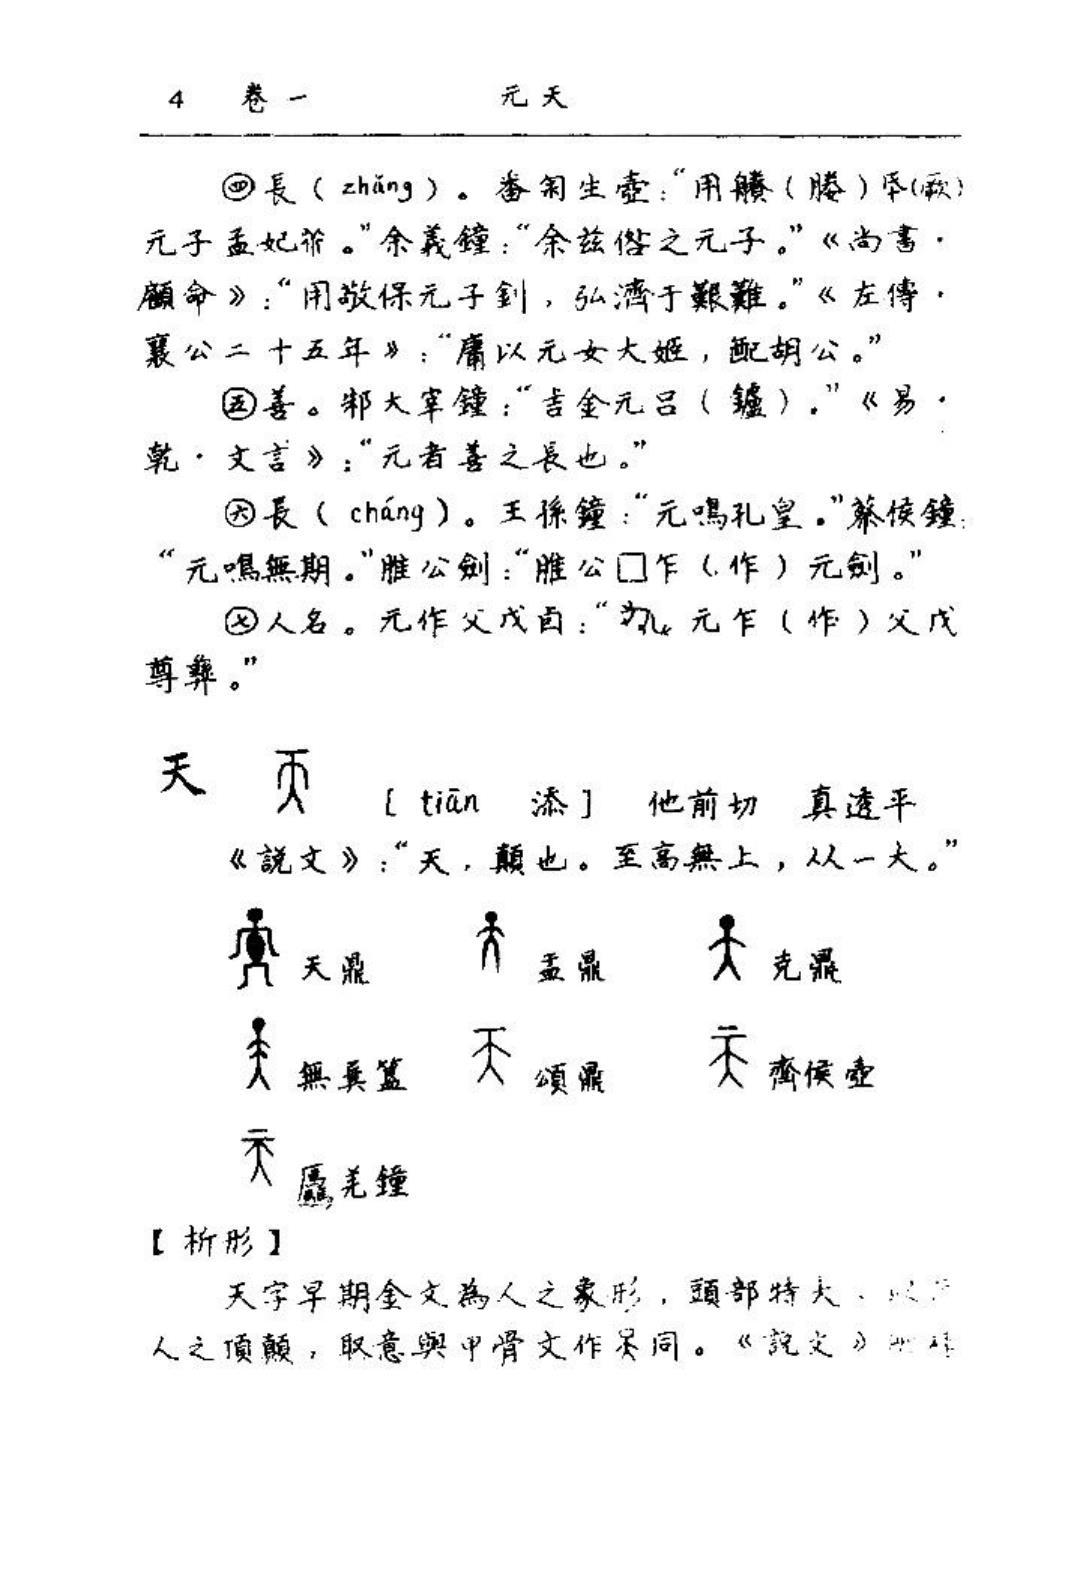 4 卷一 元天
㊃長（zhǎng）。番匊生壺：“用賸（媵）氒（厥）
元子孟妃。”余義鐘：“余兹佫之元子。”《尚書·
顧命》：“用敬保元子釗，弘濟于艱難。”《左傳·
襄公二十五年》：“庸以元女大姬，配胡公。”
㊄善。邾大宰鐘：“吉金元呂（鑪）。”《易·
乾·文言》：“元者善之長也。”
㊅長（cháng）。王孫鐘：“元鳴孔皇。”蔡侯鐘：
“元鳴無期。”脽公劍：“脽公□乍（作）元劍。”
㊆人名。元作父戊卣：“元乍（作）父戊
尊彝。”
天 [tiān 添] 他前切 真透平
《説文》：“天，顛也。至高無上，从一大。”
天鼎 盂鼎 克鼎
無㠱簋 頌鼎 齊侯壺
羌鐘
【析形】
天字早期金文為人之象形，頭部特大、以
人之頂顛，取意與甲骨文作同。《説文》